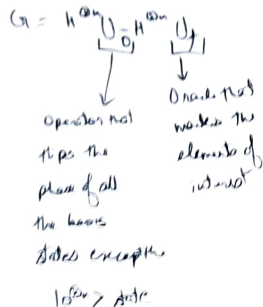 G = H^{⊗n} U_{\bar{0}} H^{⊗n} U_f
Operator that
flips the
phase of all
the basis
states except the
|0^{⊗n}> state
Oracle that
marks the
elements of
interest